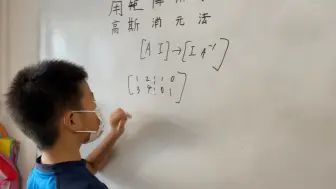 用矩阵
高斯消元法
[A I]→[I A⁻¹]
[1 2 ¦ 1 0
3 4 ¦ 0 1]